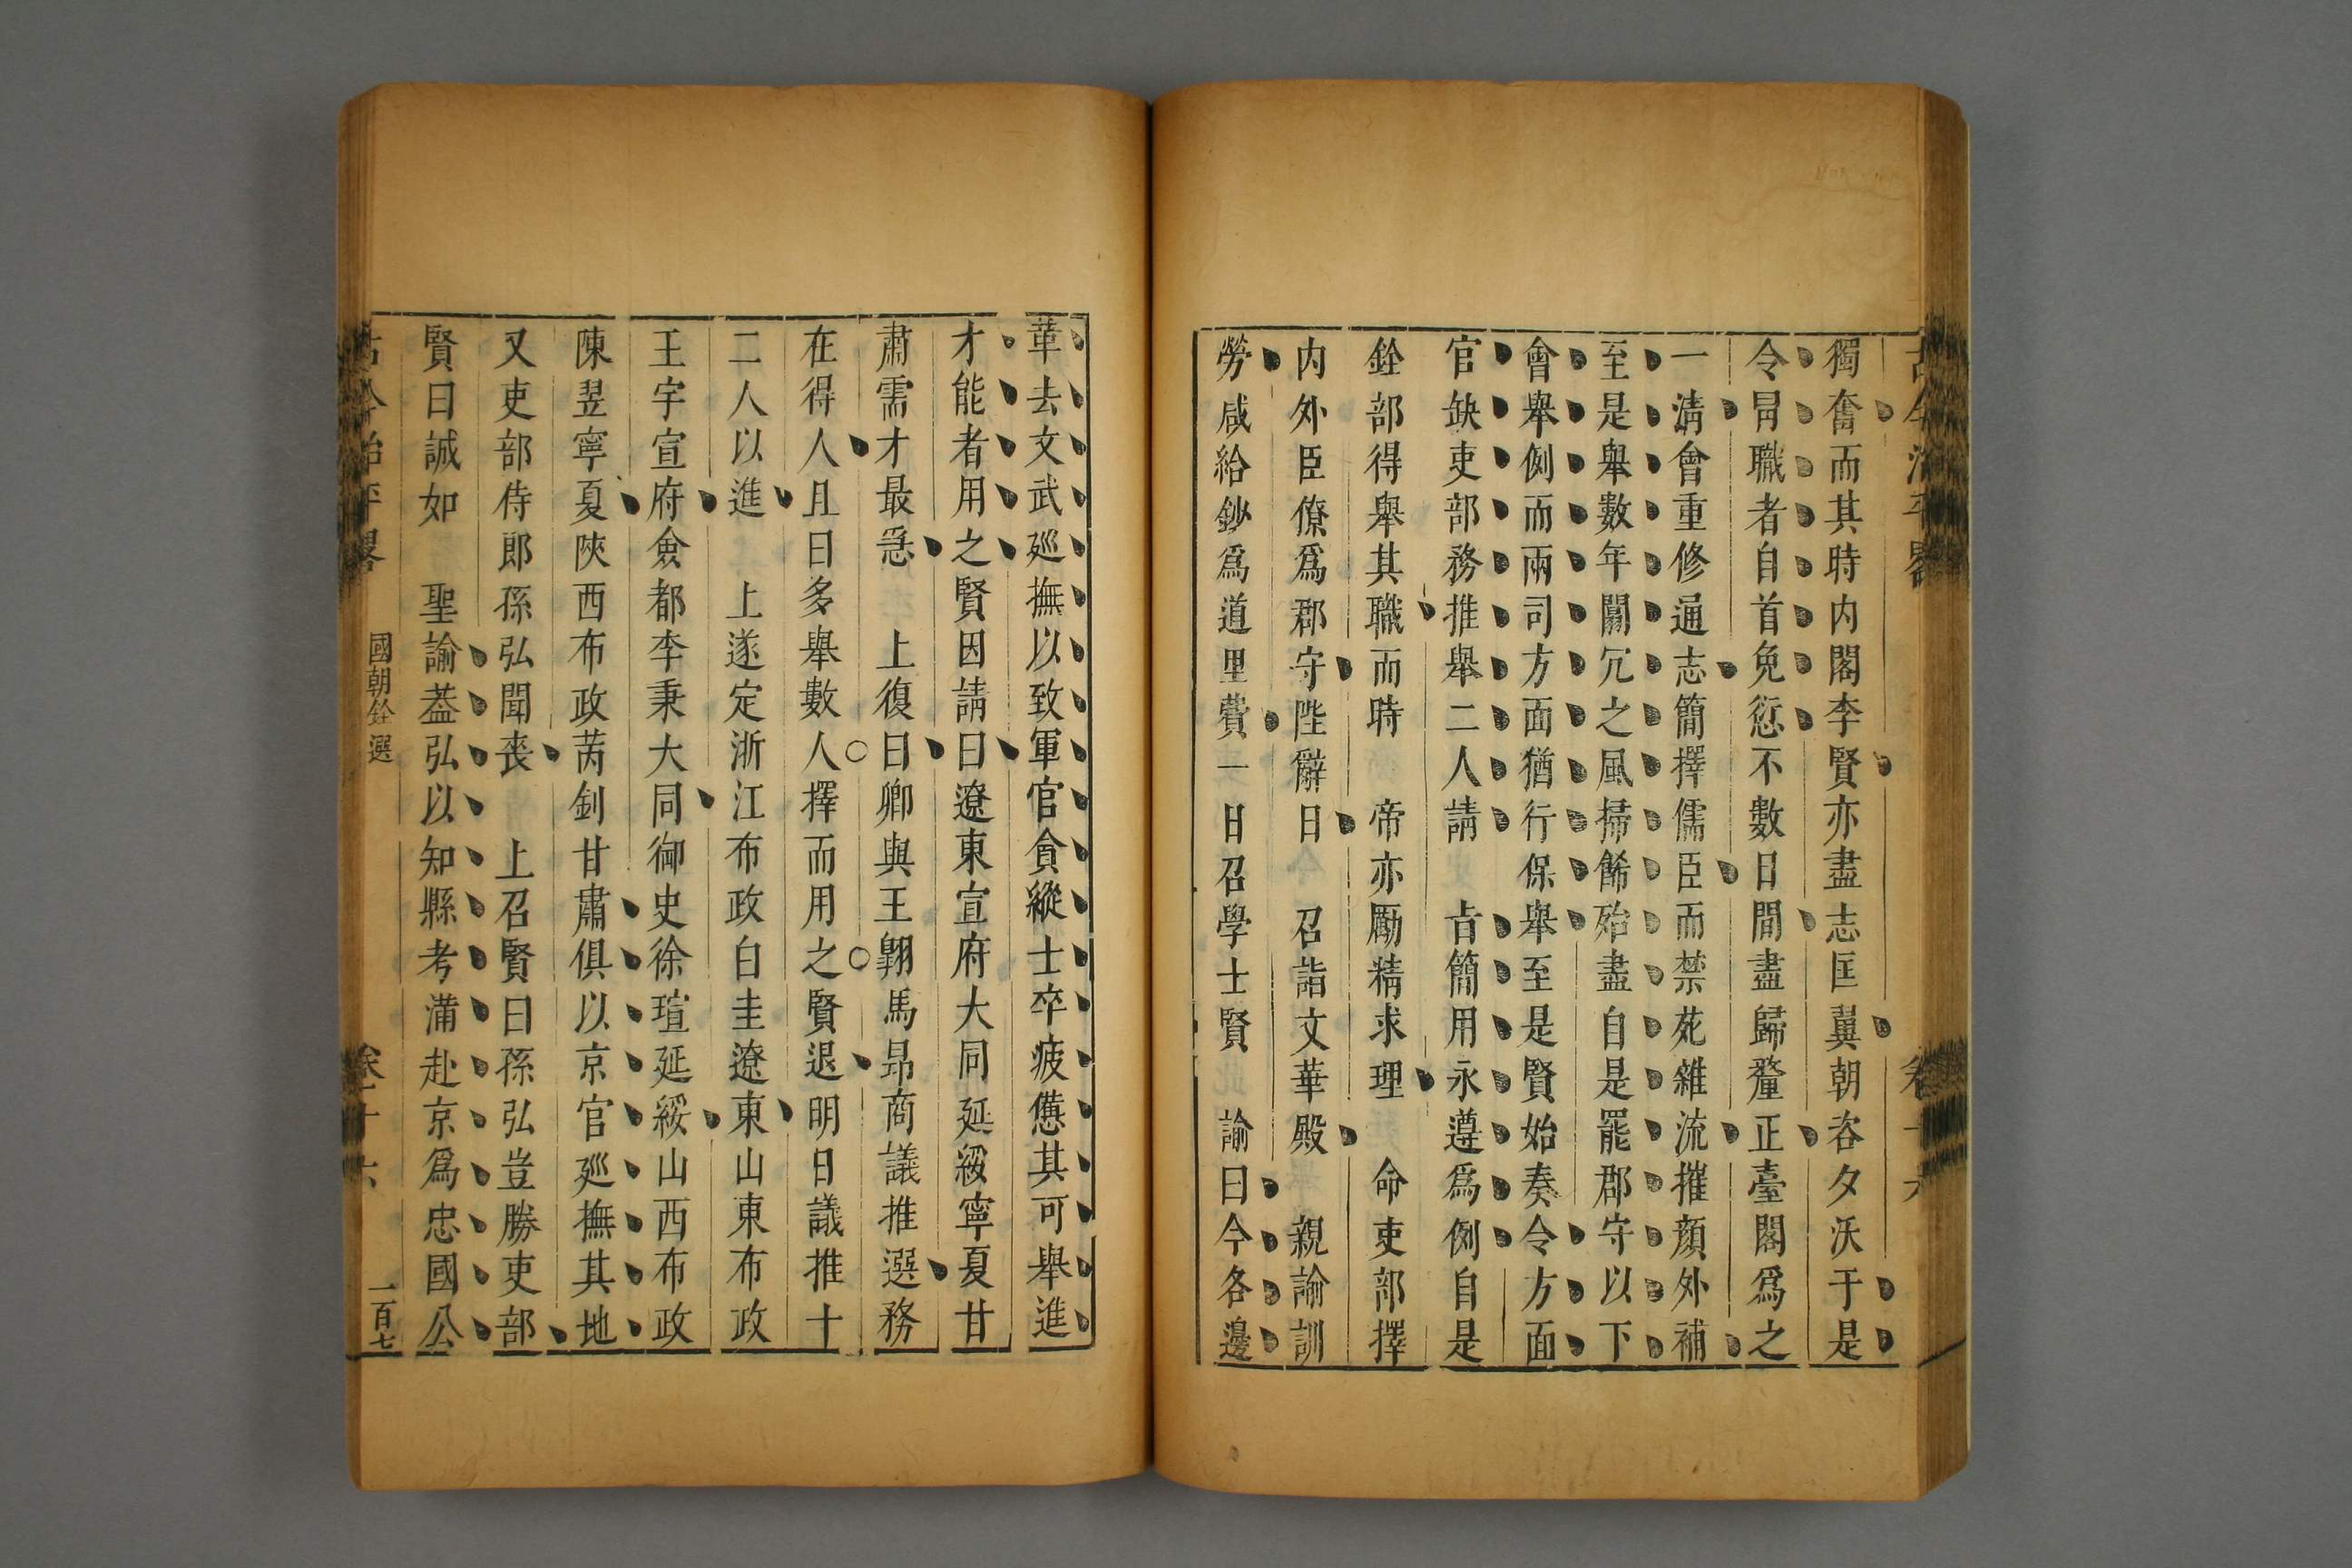 獨奮而其時内閣李賢亦盡志匡翼朝咨夕沃于是
令冐職者自首免愆不數日間盡歸釐正臺閣爲之
一清會重修通志簡擇儒臣而禁苑雜流摧顔外補
至是舉數年闒冗之風掃餙殆盡自是罷郡守以下
會舉例而兩司方面猶行保舉至是賢始奏令方面
官缺吏部務推舉二人請　㫖簡用永遵爲例自是
銓部得舉其職而時　帝亦勵精求理　命吏部擇
内外臣僚爲郡守陛辭日　召詣文華殿　親諭訓
勞咸給鈔爲道里費一日召學士賢　諭曰今各邊
革去文武廵撫以致軍官貪縱士卒疲憊其可舉進
才能者用之賢因請曰遼東宣府大同延綏寧夏甘
肅需才最急　上復曰卿與王翺馬昂商議推選務
在得人且曰多舉數人擇而用之賢退明日議推十
二人以進　上遂定浙江布政白圭遼東山東布政
王宇宣府僉都李秉大同御史徐瑄延綏山西布政
陳翌寧夏陝西布政芮釗甘肅俱以京官廵撫其地
又吏部侍郎孫弘聞喪　上召賢曰孫弘豈勝吏部
賢曰誠如　聖諭葢弘以知縣考滿赴京爲忠國公
古今治平畧
國朝銓選
卷十六
一百七